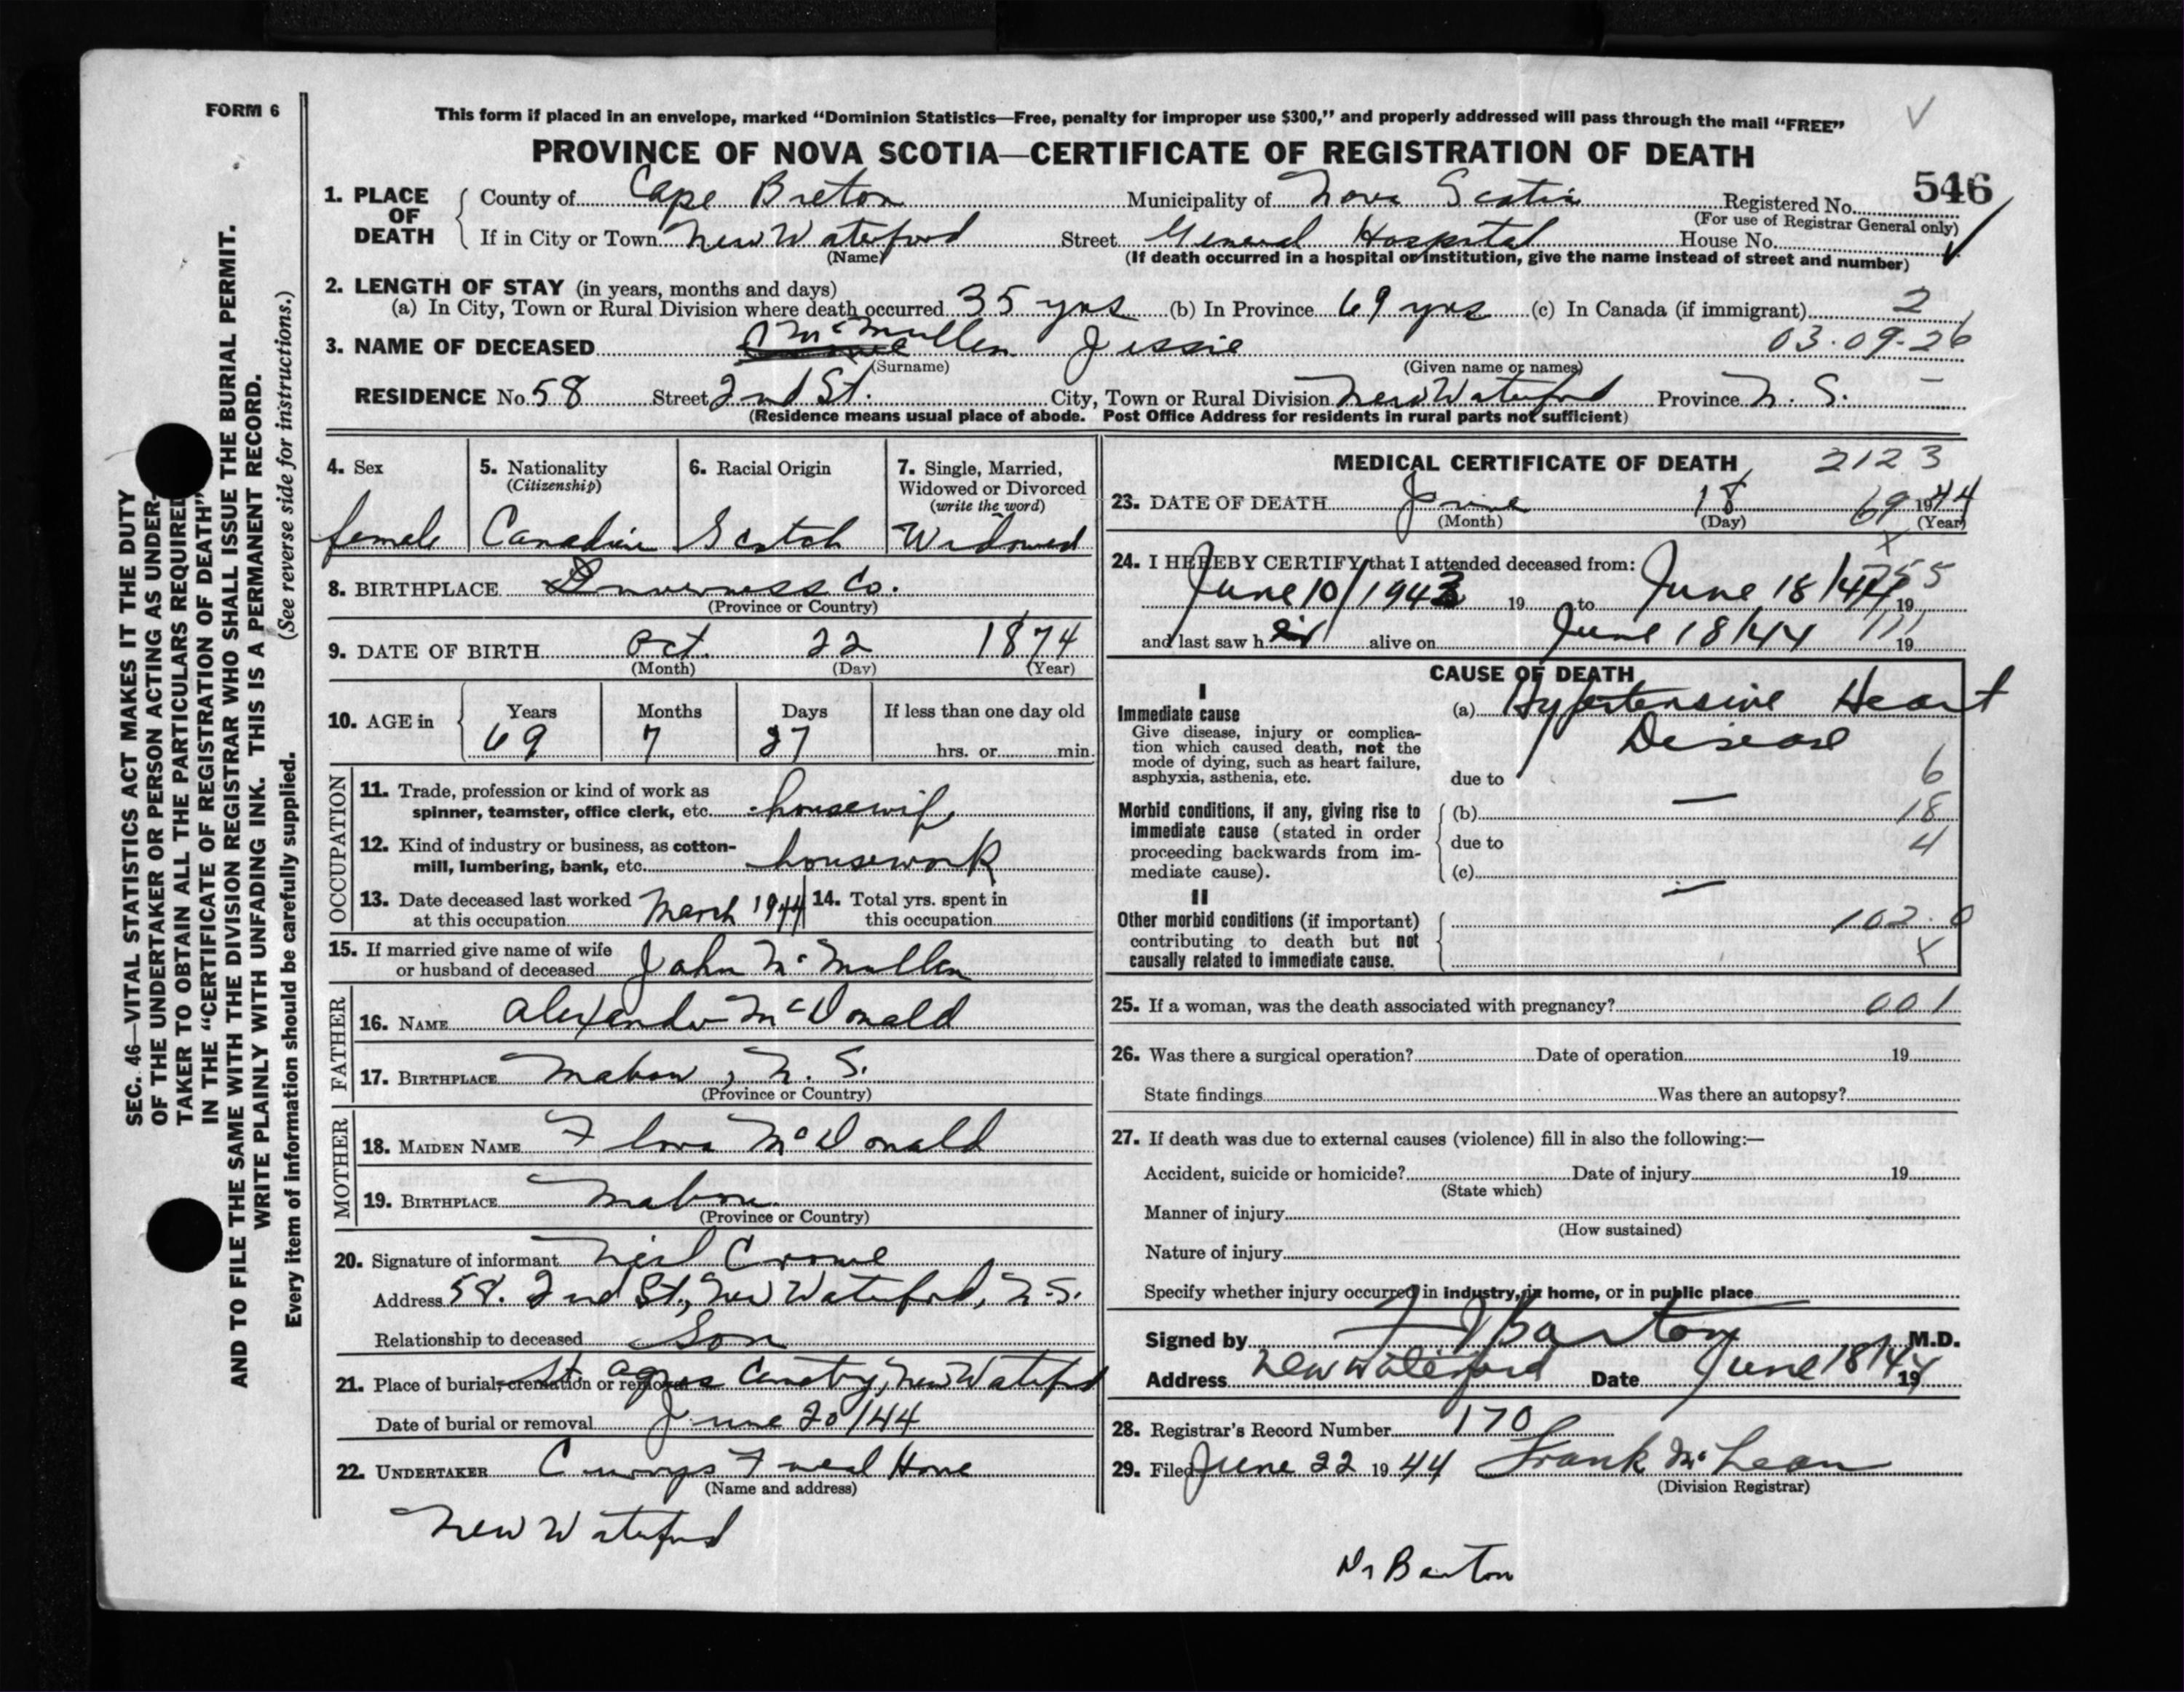 FORM 6
This form if placed in an envelope, marked "Dominion Statistics—Free, penalty for improper use $300," and properly addressed will pass through the mail "FREE"
PROVINCE OF NOVA SCOTIA—CERTIFICATE OF REGISTRATION OF DEATH
546
1. PLACE OF DEATH County of Cape Breton Municipality of Nova Scotia Registered No.
(For use of Registrar General only)
If in City or Town New Waterford Street General Hospital House No.
(Name) (If death occurred in a hospital or institution, give the name instead of street and number)
2. LENGTH OF STAY (in years, months and days)
(a) In City, Town or Rural Division where death occurred 35 yrs (b) In Province 69 yrs (c) In Canada (if immigrant) 2
3. NAME OF DECEASED McMullen Jessie 03.09.26
(Surname) (Given name or names)
RESIDENCE No. 58 Street 2nd St. City, Town or Rural Division New Waterford Province N. S.
(Residence means usual place of abode. Post Office Address for residents in rural parts not sufficient)
4. Sex 5. Nationality 6. Racial Origin 7. Single, Married,
(Citizenship) Widowed or Divorced
(write the word)
female Canadian Scotch Widowed
8. BIRTHPLACE Inverness Co.
(Province or Country)
9. DATE OF BIRTH Oct. 22 1874
(Month) (Day) (Year)
10. AGE in Years Months Days If less than one day old
69 7 27 hrs. or min.
OCCUPATION
11. Trade, profession or kind of work as
spinner, teamster, office clerk, etc. housewife
12. Kind of industry or business, as cotton-
mill, lumbering, bank, etc. housework
13. Date deceased last worked at this occupation March 1944 14. Total yrs. spent in this occupation
15. If married give name of wife
or husband of deceased John McMullen
FATHER
16. NAME Alexander McDonald
17. BIRTHPLACE Mabou, N. S.
(Province or Country)
MOTHER
18. MAIDEN NAME Flora McDonald
19. BIRTHPLACE Mabou
(Province or Country)
20. Signature of informant Neil Crowe
Address 58. 2nd St., New Waterford, N.S.
Relationship to deceased Son
21. Place of burial, cremation or removal St. Agnes Cemetry, New Waterford
Date of burial or removal June 20/44
22. UNDERTAKER Currys Funeral Home
(Name and address)
New Waterford
MEDICAL CERTIFICATE OF DEATH 2123
23. DATE OF DEATH June 18 69 1944
(Month) (Day) (Year)
x
24. I HEREBY CERTIFY that I attended deceased from: 55
June 10/1943 19 to June 18/44 19
and last saw her alive on June 18/44 19
CAUSE OF DEATH
I
Immediate cause (a) Hypertensive Heart
Give disease, injury or complica-
tion which caused death, not the Disease
mode of dying, such as heart failure,
asphyxia, asthenia, etc. due to 6
Morbid conditions, if any, giving rise to (b) — 18
immediate cause (stated in order
proceeding backwards from im- due to 4
mediate cause). (c)
II —
Other morbid conditions (if important) 102.0
contributing to death but not
causally related to immediate cause. x
25. If a woman, was the death associated with pregnancy? 001
26. Was there a surgical operation? Date of operation 19
State findings Was there an autopsy?
27. If death was due to external causes (violence) fill in also the following:—
Accident, suicide or homicide? Date of injury 19
(State which)
Manner of injury
(How sustained)
Nature of injury
Specify whether injury occurred in industry, in home, or in public place
Signed by F J Barton M.D.
Address New Waterford Date June 18/44 19
28. Registrar's Record Number 170
29. Filed June 22 1944 Frank McLean
(Division Registrar)
Dr Barton
SEC. 46—VITAL STATISTICS ACT MAKES IT THE DUTY
OF THE UNDERTAKER OR PERSON ACTING AS UNDER-
TAKER TO OBTAIN ALL THE PARTICULARS REQUIRED
IN THE "CERTIFICATE OF REGISTRATION OF DEATH"
AND TO FILE THE SAME WITH THE DIVISION REGISTRAR WHO SHALL ISSUE THE BURIAL PERMIT.
WRITE PLAINLY WITH UNFADING INK. THIS IS A PERMANENT RECORD.
Every item of information should be carefully supplied. (See reverse side for instructions.)